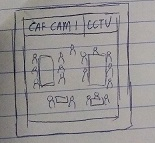 CAF CAM 1 CCTV